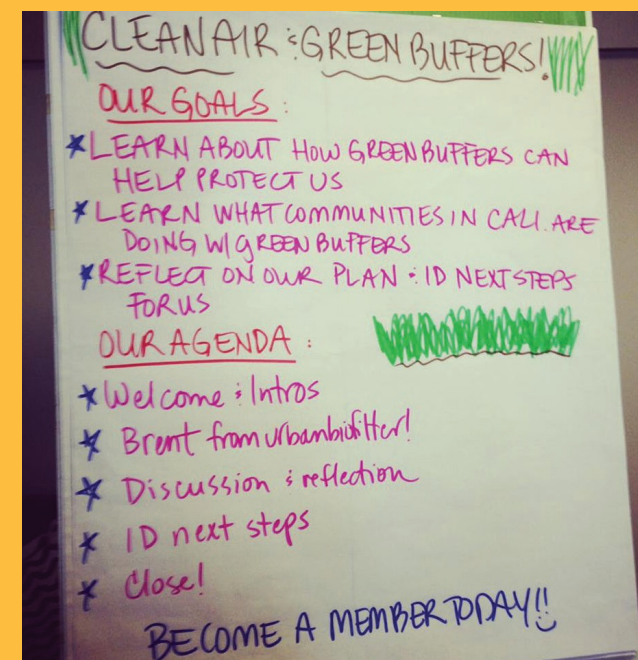 CLEAN AIR & GREEN BUFFERS!
OUR GOALS:
* LEARN ABOUT HOW GREEN BUFFERS CAN
HELP PROTECT US
* LEARN WHAT COMMUNITIES IN CALI. ARE
DOING W/ GREEN BUFFERS
* REFLECT ON OUR PLAN & ID NEXT STEPS
FOR US
OUR AGENDA:
* Welcome & Intros
* Brent from urbanbiofilter!
* Discussion & reflection
* ID next steps
* Close!
BECOME A MEMBER TODAY!!